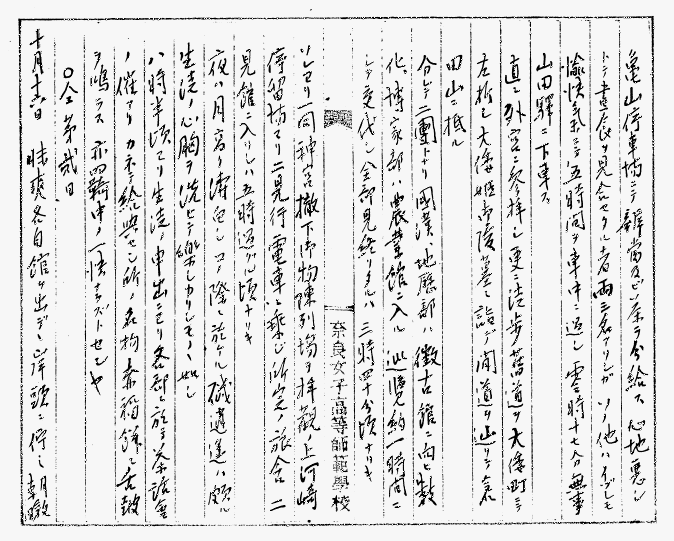 亀山停車場ニテ辨當及ビ茶ヲ分給ス心地悪シ
トテ晝食ヲ見合セタル者両三名アリシガソノ他ハイヅレモ
愉快氣ニテ五時間ヲ車中ニ過シ零時十七分無事
山田驛ニ下車ス
直ニ外宮ニ参拝シ更ニ徒歩舊道ヲ大倭町ニ
左折シ大倭姫命陵墓ニ詣デ間道ヲ辿リテ倉
田山ニ抵ル
分レテ二團トリ國漢、地歴部ハ徴古館ニ向ヒ数
化、博家部ハ農業館ニ入ル巡覧約一時間ニ
シテ交代シ全部見終リタルハ三時四十分頃ナリキ
奈良女子高等師範學校
ソレヨリ一同神宮撤下御物陳列場ヲ拝観ノ上河崎
停留場ヨリ二見行電車ニ乗ジ所定ノ旅舎二
見館ニ入リシハ五時過グル頃ナリキ
夜ハ月高ク濤白シコノ際ニ於ケル磯邊逍遥ハ頗ル
生徒ノ心胸ヲ洗ヒテ楽シカリシモノヽ如シ
八時半頃ヨリ生徒ノ申出ニヨリ各部ニ於テ茶話會
ノ催アリカネテ給與セシ所ノ名物赤福餅ニ舌鼓
ヲ鳴ラス亦羈中ノ一快ナラズトセンヤ
〇仝第貳日
十月十六日 昧爽各自館ヲ出デヽ岸頭ニ佇ミ朝暾